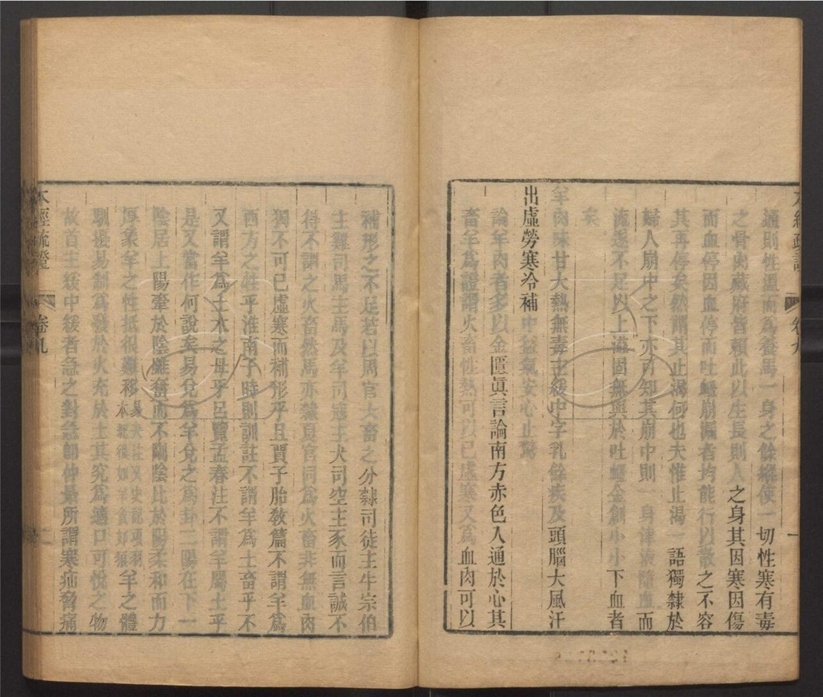 通則性溫而為養馬一身之餘縱使一切性寒有毒
之骨肉藏府皆賴此以生長則人之身其因寒因傷
而血停因血停而吐衄崩漏者均能行以散之不容
其再停矣然謂其止渴何也夫惟止渴一語獨隸於
婦人崩中之下亦可知其崩中則一身津液隨血而
流遂不足以上溢固無與於吐衄金創小小下血者
矣
羊肉味甘大熱無毒主緩中字乳餘疾及頭腦大風汗
出虛勞寒冷補中益氣安心止驚
論羊肉者多以金匱真言論南方赤色入通於心其
畜羊為證謂火畜性熱可以已虛寒又為血肉可以
補形之不足若以周官六畜之分隸司徒主牛宗伯
主雞司馬主馬及羊司寇主犬司空主豕而言誠不
得不謂之火畜然馬亦隸夏官同為火畜非無血肉
獨不可已虛寒而補形乎且賈子胎教篇不謂羊為
西方之牲乎淮南子時則訓註不謂羊為土畜乎不
又謂羊為土木之母乎呂覽孟春注不謂羊屬土乎
是又當作何說矣易兌為羊兌之為卦二陽在下一
陰居上陽牽於陰雖奮而不剛陰比於陽柔和而力
厚象羊之性抵很難移
羊之體
故首主緩中緩者急之對急即仲景所謂寒疝脅痛
本經疏證
卷九
二